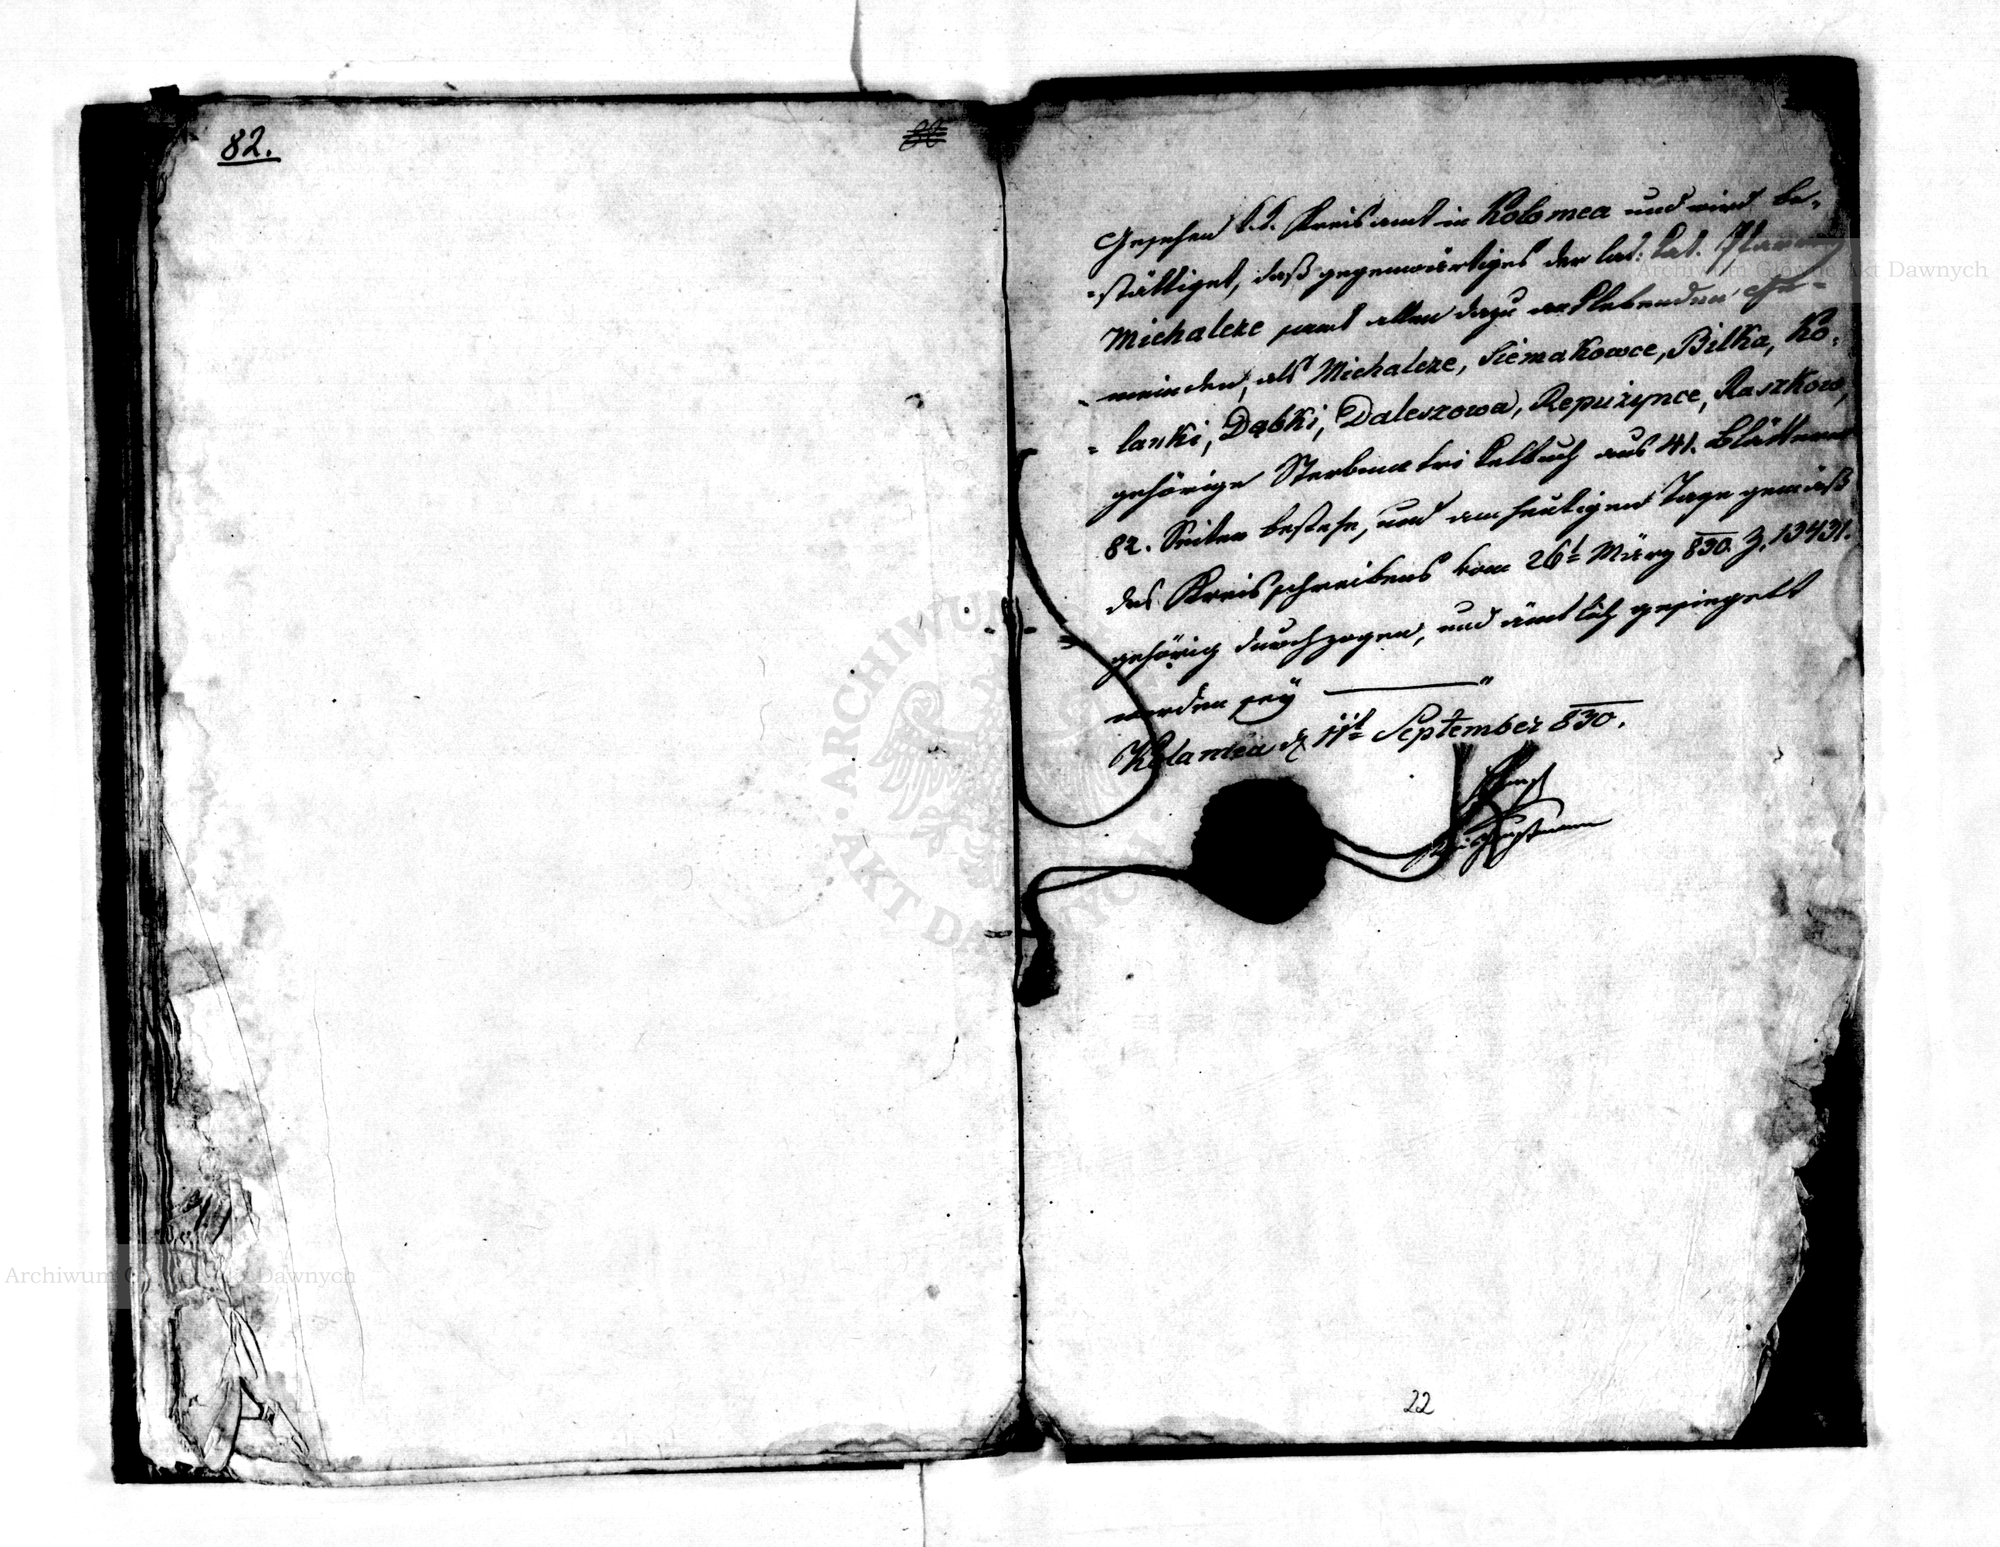 82.
Gesehen k.k. Kreisamt in Kolomea und wird be-
-stättiget, daß gegenwärtiges der lat: Pfarrey
Michalcze samt allen dazu anklebenden Ge-
-meinden, als Michalcze, Siemakowce, Bilka, Ko-
-lanki, Dąbki, Daleszowa, Repużynce, Raszkow,
gehörige Sterbmatrikelbuch aus 41. Blättern
82. Seiten bestehe, und am heutigen Tage gemäß
des Kreisschreibens vom 26t März 830. Z. 13431.
gehörig durchzogen, und ämtlich gesiegelt
worden sey
Kolomea d 11t September 830.
22
Archiwum Główne Akt Dawnych
ARCHIWUM
AKT DAWNYCH
Archiwum Główne Akt Dawnych